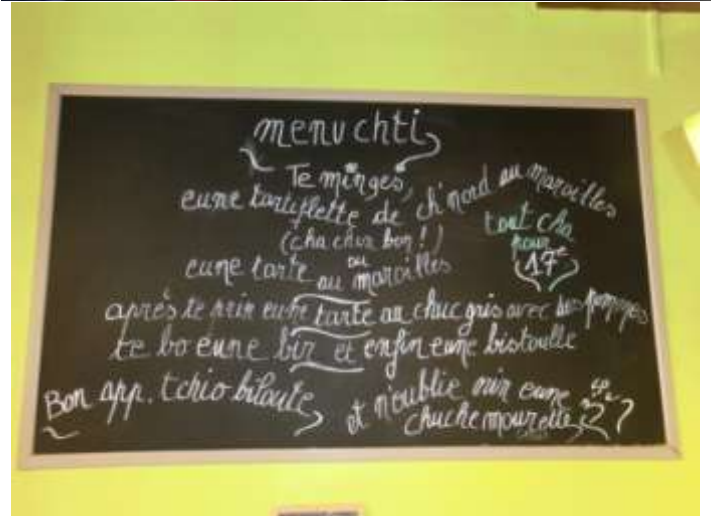 menu chti
Te minges,
eune tartiflette de ch'nord au maroilles
(cha ch'est bon !)
ou
eune tarte au maroilles
tout cha
pour
17€
après te prin eune tarte au chuc gris avec des pommes
te bo eune bir et enfin eune bistoulle
Bon app. tchio biloute,
et n'oublie nin eune
chuche mourette